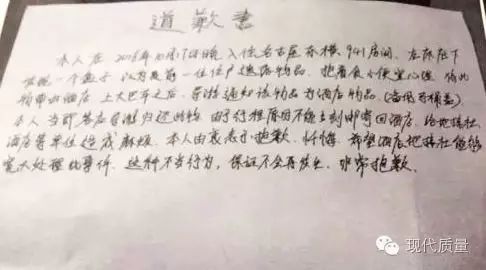 道歉書
本人在2016年10月17日晚入住名古屋东横941房间，在床底下
发现一个盒子，以为是前一位住户遗落物品，抱着贪小便宜心理，将此
物带出酒店，上大巴车之后，导游通知该物品为酒店物品。（智能马桶盖）
本人当即答应导游归还此物，由于行程原因不能立刻邮寄回酒店，给地接社
酒店等单位造成麻烦，本人由衷表示抱歉、忏悔，希望酒店地接社能够
宽大处理此事件，这种不当行为，保证不会再发生，非常抱歉。
现代质量